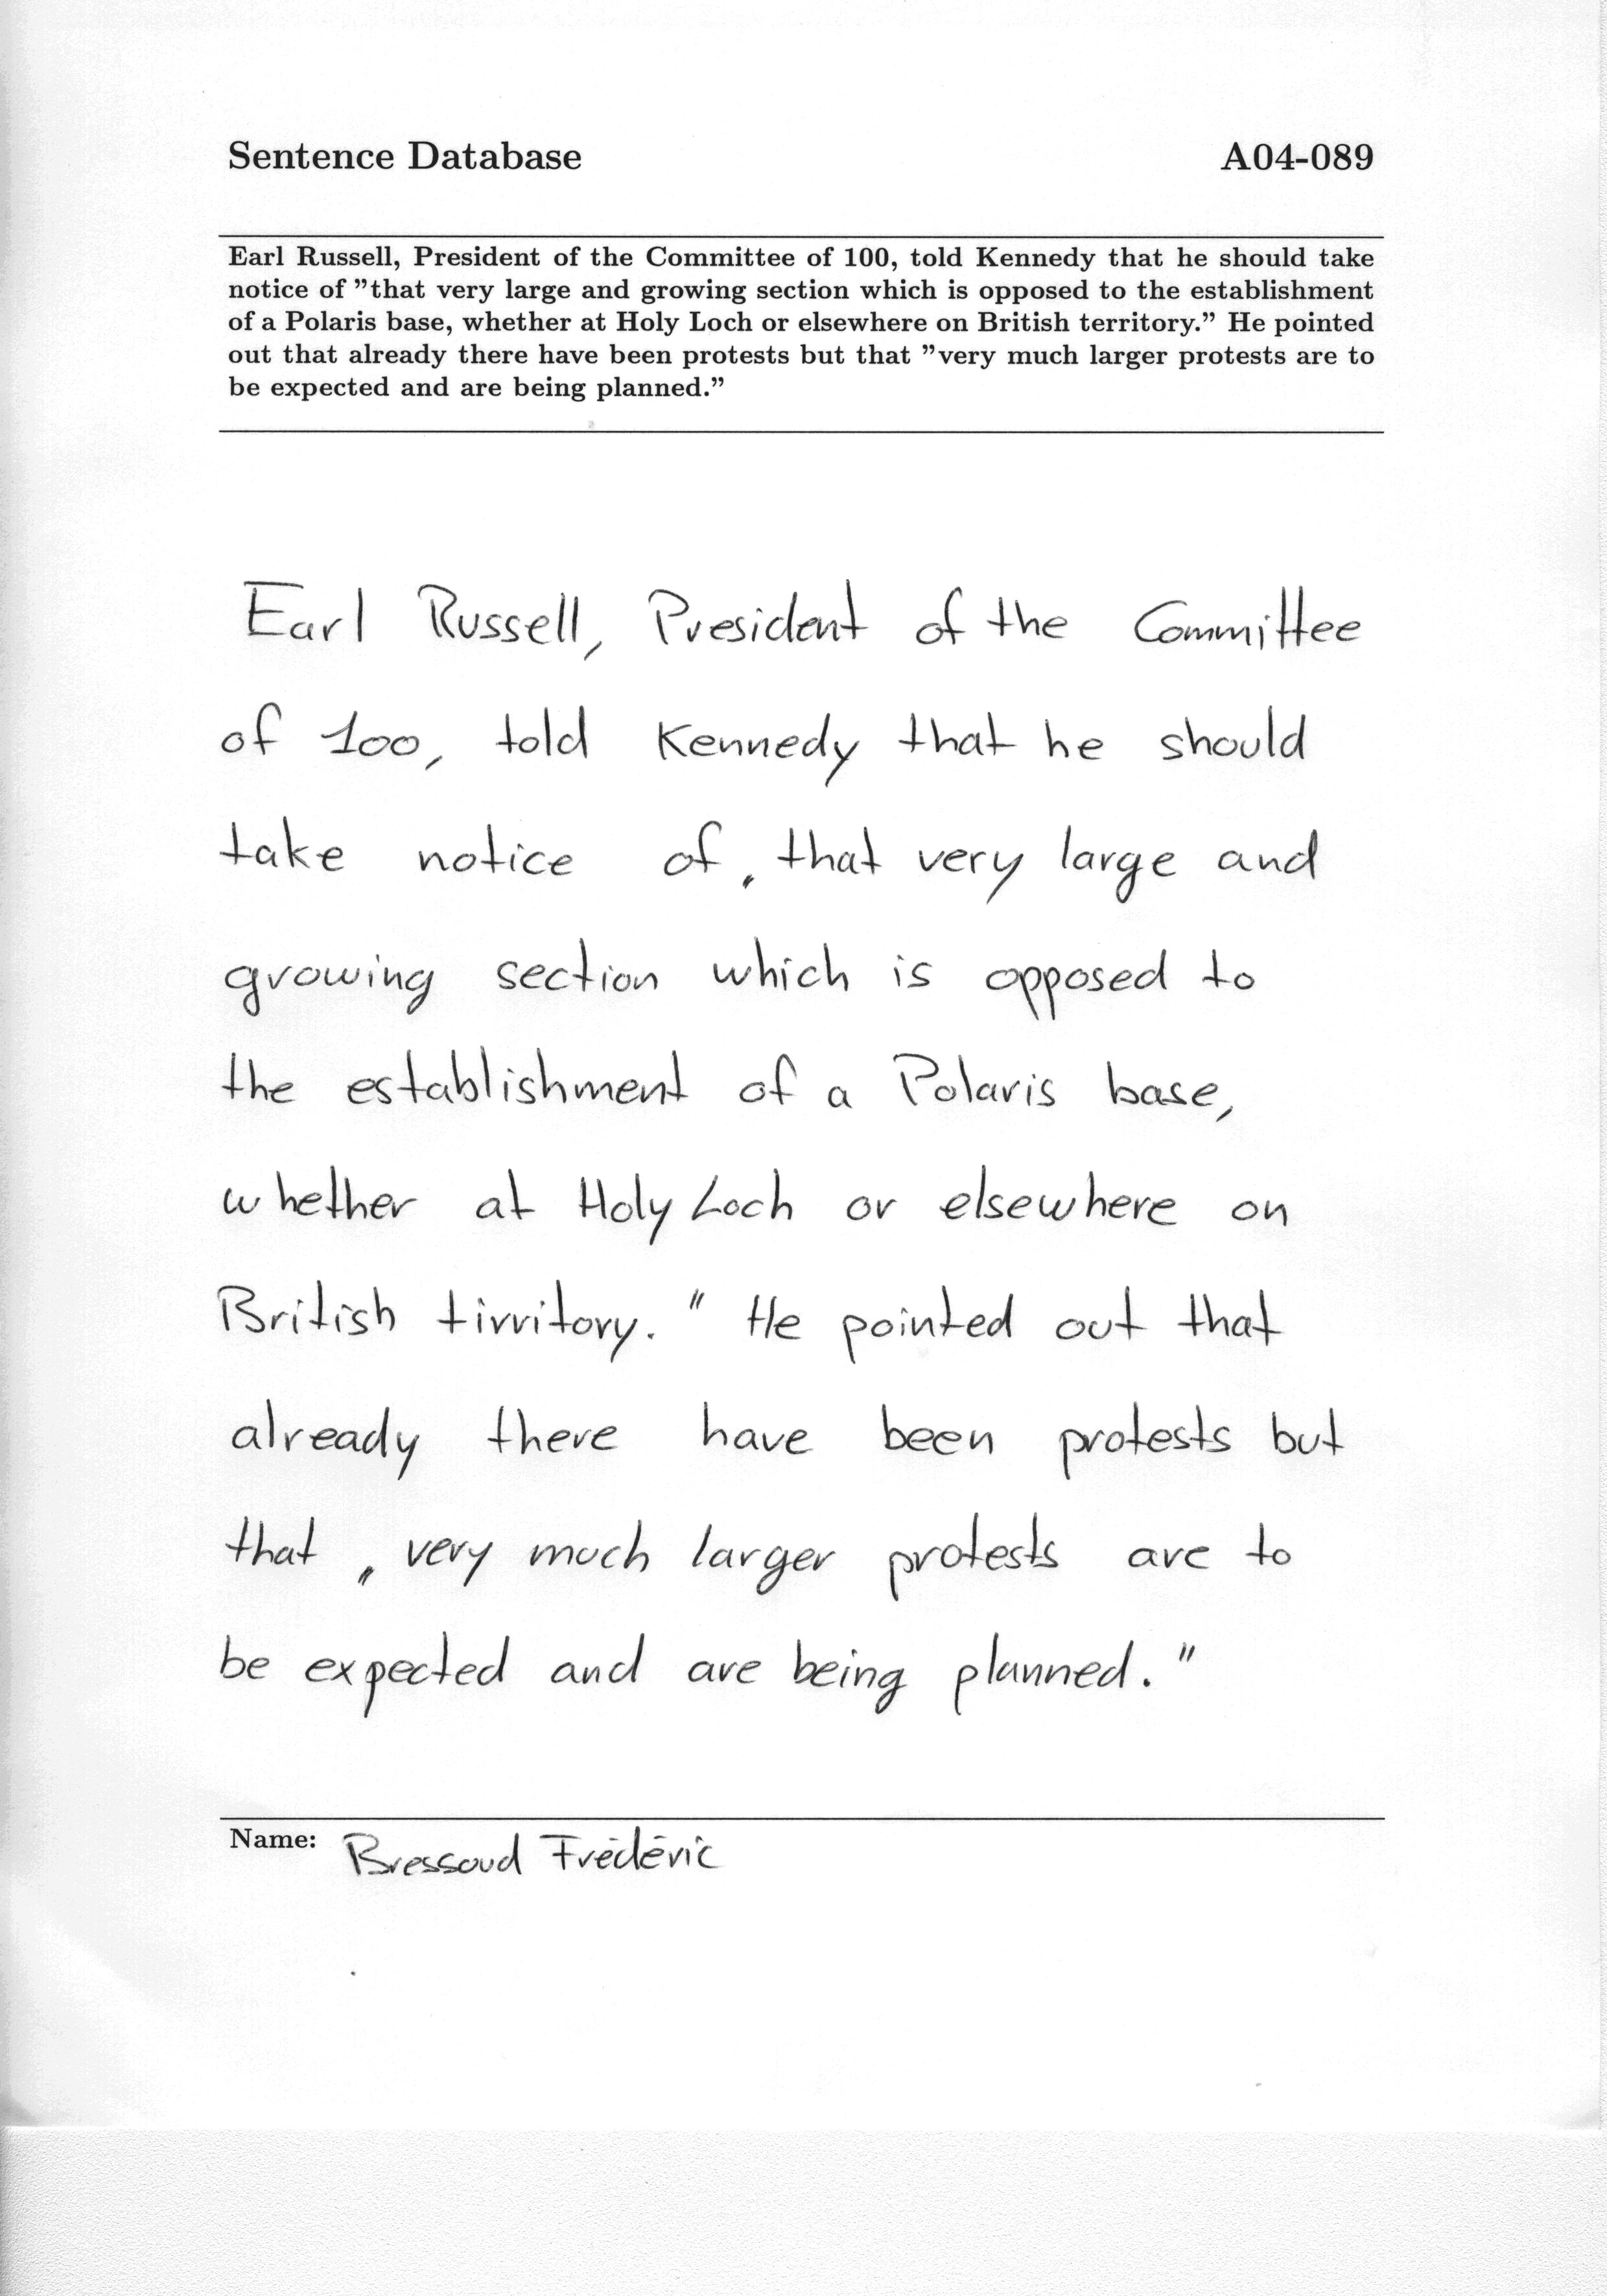 Sentence Database A04-089
Earl Russell, President of the Committee of 100, told Kennedy that he should take
notice of ”that very large and growing section which is opposed to the establishment
of a Polaris base, whether at Holy Loch or elsewhere on British territory.” He pointed
out that already there have been protests but that ”very much larger protests are to
be expected and are being planned.”
Earl Russell, President of the Committee
of 100, told Kennedy that he should
take notice of „ that very large and
growing section which is opposed to
the establishment of a Polaris base,
whether at Holy Loch or elsewhere on
British tirritory. " He pointed out that
already there have been protests but
that „ very much larger protests are to
be expected and are being planned. "
Name: Bressoud Frédéric